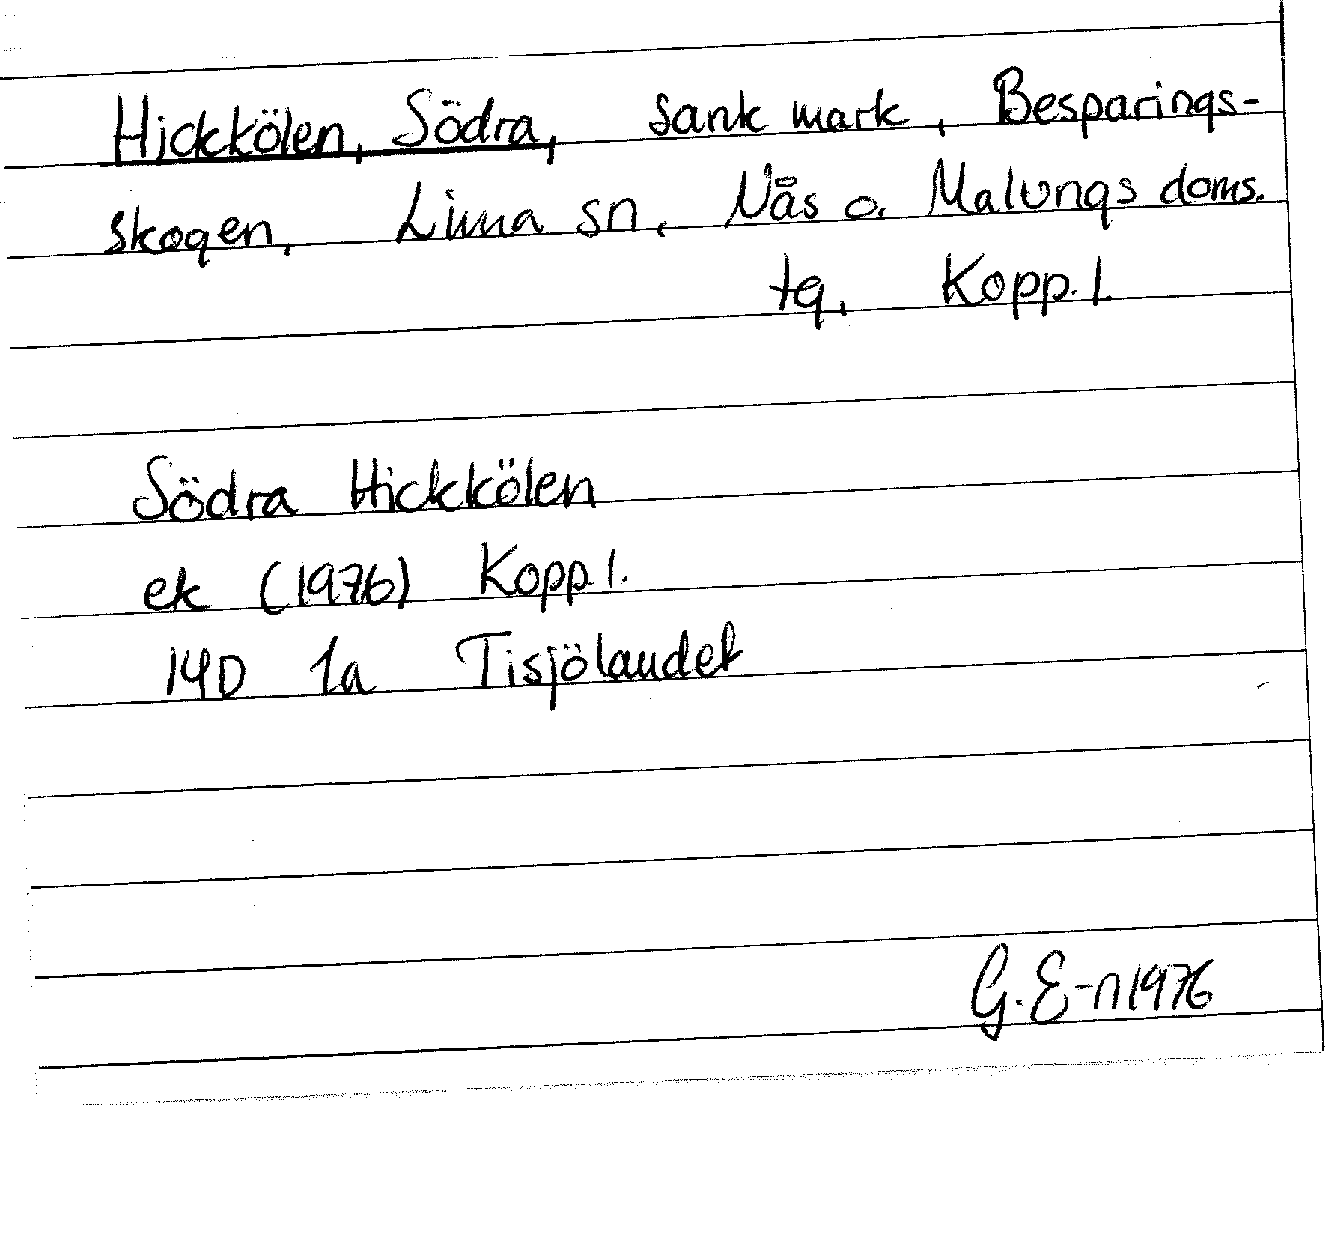 Hickkölen, Södra, sank mark, Besparings-
skogen, Lima sn, Nås o. Malungs doms.
tg, Kopp. l.
Södra Hickkölen
ek (1976) Kopp. l.
14D 1a Tisjölandet
G. E-n 1976